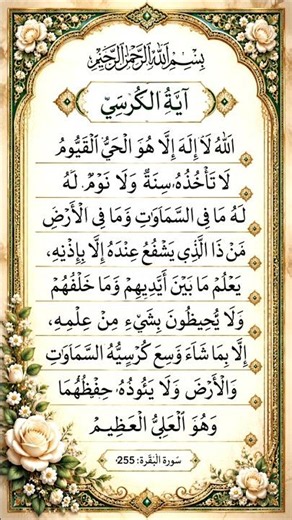 بِسْمِ اللَّهِ الرَّحْمَنِ الرَّحِيمِ
آيَةُ الكُرْسِيِّ
اللَّهُ لَا إِلَهَ إِلَّا هُوَ الْحَيُّ الْقَيُّومُ
لَا تَأْخُذُهُ سِنَةٌ وَلَا نَوْمٌ لَهُ
لَهُ مَا فِي السَّمَاوَتِ وَمَا فِي الْأَرْضِ
مَنْ ذَا الَّذِي يَشْفَعُ عِنْدَهُ إِلَّا بِإِذْنِهِ،
يَعْلَمُ مَا بَيْنَ أَيْدِيهِمْ وَمَا خَلْفَهُمْ
وَلَا يُحِيطُونَ بِشَيْءٍ مِنْ عِلْمِهِ،
إِلَّا بِمَا شَاءَ وَسِعَ كُرْسِيُّهُ السَّمَاوَتِ
وَالْأَرْضَ وَلَا يَئُودُهُ حِفْظُهُمَا
وَهُوَ الْعَلِيُّ الْعَظِيمُ
سُورَة الْبَقَرَة: 255